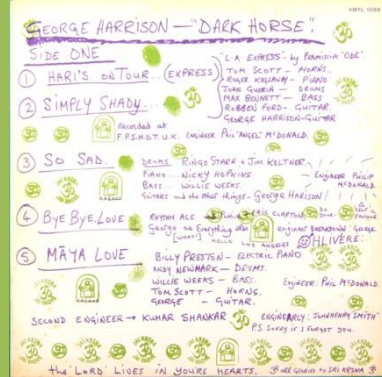 GEORGE HARRISON — "DARK HORSE".
SIDE ONE
① HARI'S ON TOUR... (EXPRESS)
L.A. EXPRESS - by Permission 'ODE'.
TOM SCOTT - HORNS.
ROGER KELLAWAY - PIANO
JOHN GUERIN - DRUMS
MAX BENNETT - BASS
ROBBEN FORD - GUITAR.
GEORGE HARRISON - GUITAR
② SIMPLY SHADY...
Recorded at
F.P.S.H.O.T. U.K. ENGINEER PHIL 'ANGEL' McDONALD.
③ SO SAD.
DRUMS RINGO STARR + JIM KELTNER
PIANO... NICKY HOPKINS
BASS.. WILLIE WEEKS.
GUITARS and the other things - George HARISON
ENGINEER PHILIP McDONALD.
④ BYE BYE, LOVE
RHYTHM ACE ERIC CLAPTON
George on Everything else
[WHAT]
HELLO LOS ANGELES
engineer George
OHLIVERE.
⑤ MĀYA LOVE
BILLY PRESTON - ELECTRIC PIANO
ANDY NEWMARK - DRUMS.
WILLIE WEEKS - BASS.
TOM SCOTT - HORNS.
GEORGE - GUITAR.
Engineer: PHIL McDONALD.
SECOND ENGINEER → KUMAR SHANKAR
JOHN HENRY SMITH
P.S. SORRY if I FORGOT YOU.
the 'LORD' LIVES IN YOU'RE HEARTS. ॐ all Glories to SRI KRSNA ॐ